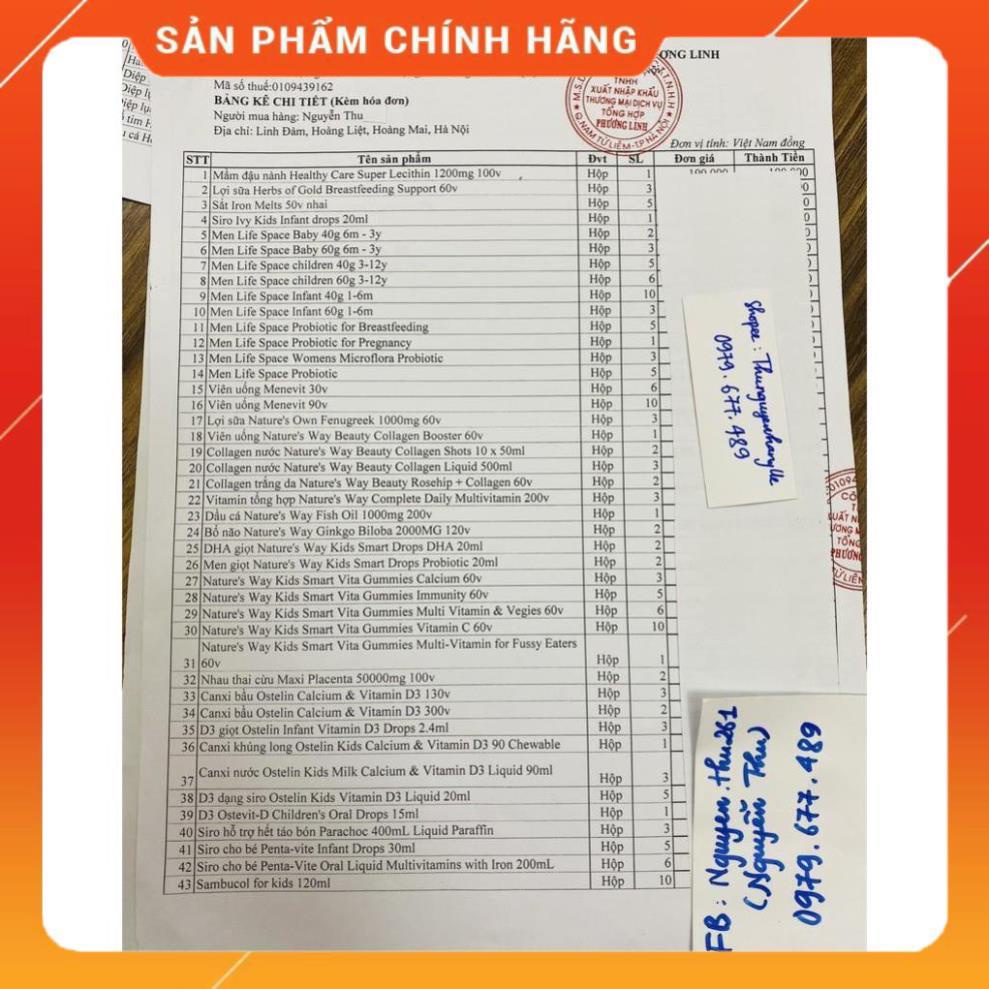 SẢN PHẨM CHÍNH HÃNG
ƠNG LINH
Mã số thuế:0109439162
BẢNG KÊ CHI TIẾT (Kèm hóa đơn)
Người mua hàng: Nguyễn Thu
Địa chỉ: Linh Đàm, Hoàng Liệt, Hoàng Mai, Hà Nội
TNHH
XUẤT NHẬP KHẨU
THƯƠNG MẠI DỊCH VỤ
TỔNG HỢP
PHƯƠNG LINH
Q.NAM TỪ LIÊM-TP HÀ NỘI
Đơn vị tính: Việt Nam đồng
STT Tên sản phẩm Đvt SL Đơn giá Thành Tiền
1 Mầm đậu nành Healthy Care Super Lecithin 1200mg 100v Hộp 1
2 Lợi sữa Herbs of Gold Breastfeeding Support 60v Hộp 3
3 Sắt Iron Melts 50v nhai Hộp 5
4 Siro Ivy Kids Infant drops 20ml Hộp 1
5 Men Life Space Baby 40g 6m - 3y Hộp 2
6 Men Life Space Baby 60g 6m - 3y Hộp 3
7 Men Life Space children 40g 3-12y Hộp 5
8 Men Life Space children 60g 3-12y Hộp 6
9 Men Life Space Infant 40g 1-6m Hộp 10
10 Men Life Space Infant 60g 1-6m Hộp 3
11 Men Life Space Probiotic for Breastfeeding Hộp 5
12 Men Life Space Probiotic for Pregnancy Hộp 1
13 Men Life Space Womens Microflora Probiotic Hộp 3
14 Men Life Space Probiotic Hộp 5
15 Viên uống Menevit 30v Hộp 6
16 Viên uống Menevit 90v Hộp 10
17 Lợi sữa Nature's Own Fenugreek 1000mg 60v Hộp 3
18 Viên uống Nature's Way Beauty Collagen Booster 60v Hộp 1
19 Collagen nước Nature's Way Beauty Collagen Shots 10 x 50ml Hộp 2
20 Collagen nước Nature's Way Beauty Collagen Liquid 500ml Hộp 3
21 Collagen trắng da Nature's Way Beauty Rosehip + Collagen 60v Hộp 2
22 Vitamin tổng hợp Nature's Way Complete Daily Multivitamin 200v Hộp 3
23 Dầu cá Nature's Way Fish Oil 1000mg 200v Hộp 1
24 Bổ não Nature's Way Ginkgo Biloba 2000MG 120v Hộp 2
25 DHA giọt Nature's Way Kids Smart Drops DHA 20ml Hộp 2
26 Men giọt Nature's Way Kids Smart Drops Probiotic 20ml Hộp 2
27 Nature's Way Kids Smart Vita Gummies Calcium 60v Hộp 3
28 Nature's Way Kids Smart Vita Gummies Immunity 60v Hộp 5
29 Nature's Way Kids Smart Vita Gummies Multi Vitamin & Vegies 60v Hộp 6
30 Nature's Way Kids Smart Vita Gummies Vitamin C 60v Hộp 10
Nature's Way Kids Smart Vita Gummies Multi-Vitamin for Fussy Eaters
31 60v Hộp 1
32 Nhau thai cừu Maxi Placenta 50000mg 100v Hộp 2
33 Canxi bầu Ostelin Calcium & Vitamin D3 130v Hộp 3
34 Canxi bầu Ostelin Calcium & Vitamin D3 300v Hộp 2
35 D3 giọt Ostelin Infant Vitamin D3 Drops 2.4ml Hộp 3
36 Canxi khủng long Ostelin Kids Calcium & Vitamin D3 90 Chewable Hộp 1
37 Canxi nước Ostelin Kids Milk Calcium & Vitamin D3 Liquid 90ml Hộp 3
38 D3 dạng siro Ostelin Kids Vitamin D3 Liquid 20ml Hộp 5
39 D3 Ostevit-D Children's Oral Drops 15ml Hộp 1
40 Siro hỗ trợ hết táo bón Parachoc 400mL Liquid Paraffin Hộp 3
41 Siro cho bé Penta-vite Infant Drops 30ml Hộp 5
42 Siro cho bé Penta-Vite Oral Liquid Multivitamins with Iron 200mL Hộp 6
43 Sambucol for kids 120ml Hộp 10
shopee: ThunguyenhangLe
0979.677.489
FB: Nguyen.thu261
(Nguyễn Thu)
0979.677.489